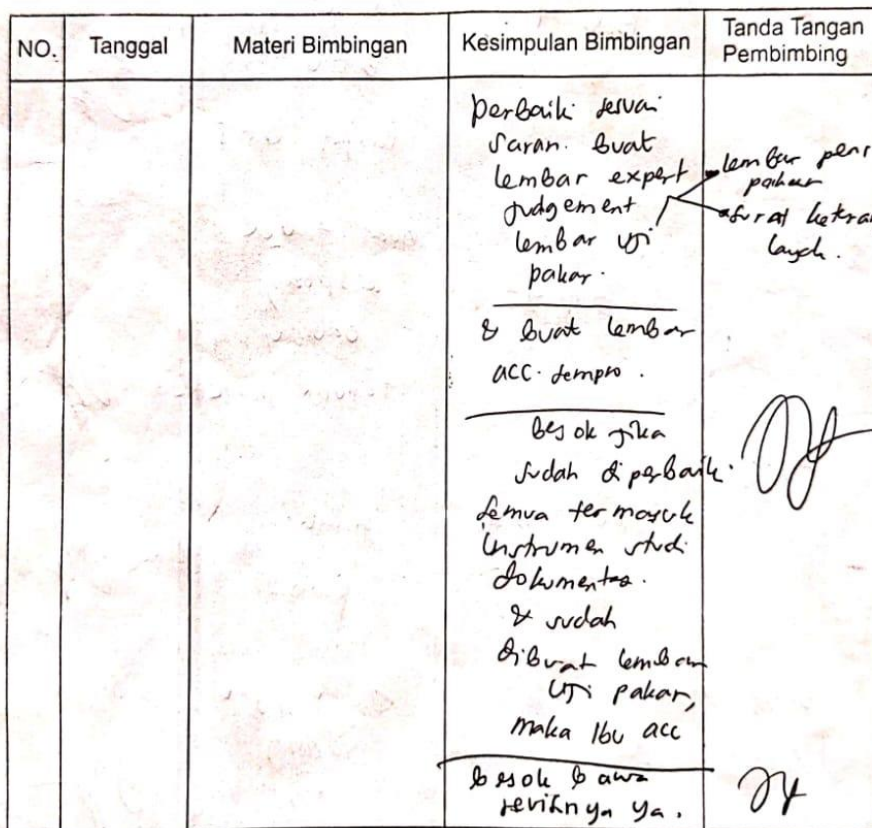 NO. Tanggal Materi Bimbingan Kesimpulan Bimbingan Tanda Tangan Pembimbing
perbaiki sesuai
saran. buat
lembar expert
judgement
lembar uji
pakar.
lembar
pakar
surat
layak.
& buat lembar
acc. sempro.
besok jika
sudah diperbaiki
semua termasuk
instrumen studi
dokumentasi.
& sudah
dibuat lembar
uji pakar,
maka Ibu acc
besok bawa
revisinya ya.